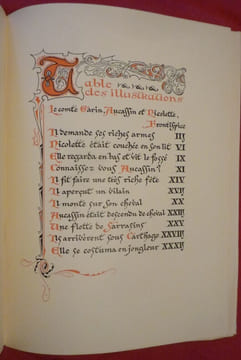 Table
des illustrations
Le comte Garin, Aucassin et Nicolette.
Frontispice
Il demande ses riches armes III
Nicolette était couchée en son lit VI
Elle regarda en bas et vit le fossé IX
Connaissez vous Aucassin? XI
Il fit faire une très riche fête XIV
Il aperçut un vilain XVII
Il monte sur son cheval XX
Aucassin était descendu de cheval XXIII
Une flotte de Sarrasins XXV
Ils arrivèrent sous Carthage XXVIII
Elle se costuma en jongleur XXXII